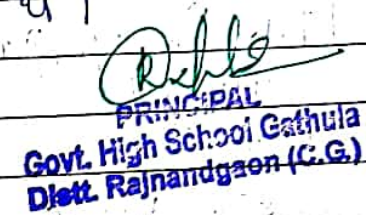 PRINCIPAL
Govt. High School Gathula
Distt. Rajnandgaon (C.G.)